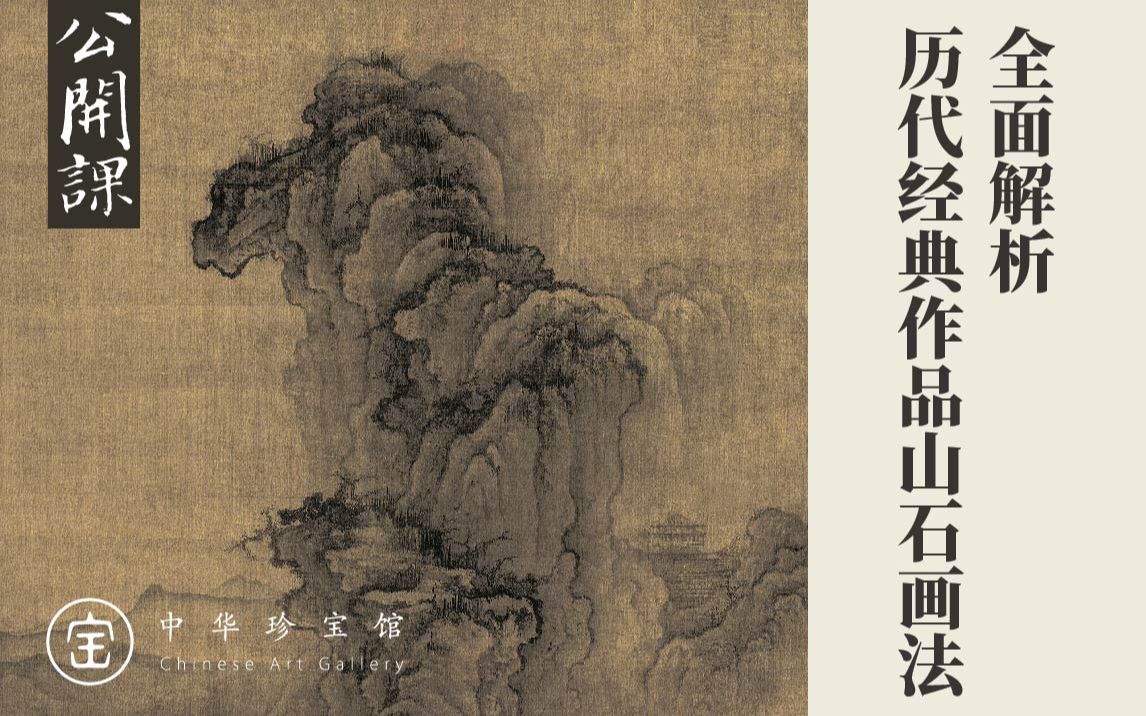 公開課
全面解析
历代经典作品山石画法
中华珍宝馆
Chinese Art Gallery
宝